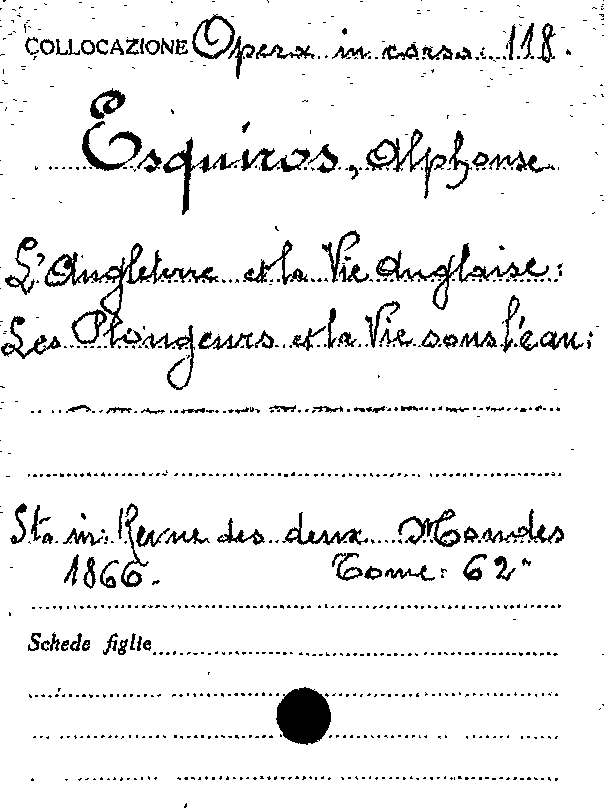 COLLOCAZIONE Opera in corso: 118.
Esquiros, Alphonse
L'Angleterre et la Vie Anglaise:
Les Plongeurs et la Vie sous l'eau:
Sta in: Revue des deux Mondes
1866. Tome: 62°
Schede figlie